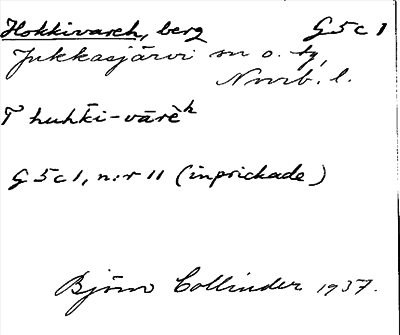 Hokkivarch, berg G5c1
Jukkasjärvi sn o. tg,
Norrb. l.
T huhki-vārèʰ
G5c1, n:r 11 (inprickade)
Björn Collinder 1937.